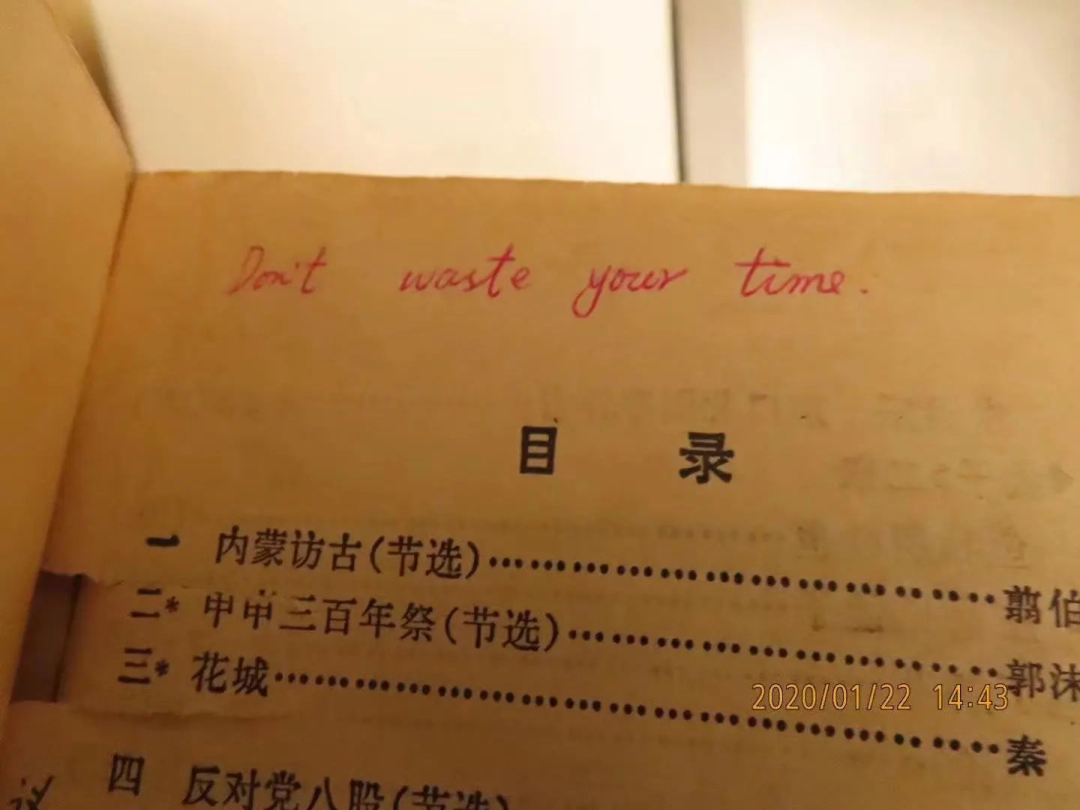 Don't waste your time.
目 录
一 内蒙访古(节选)…………………………翦伯
二* 甲申三百年祭(节选)…………………………郭沫
三* 花城…………………………秦
2020/01/22 14:43
四 反对党八股(节选)